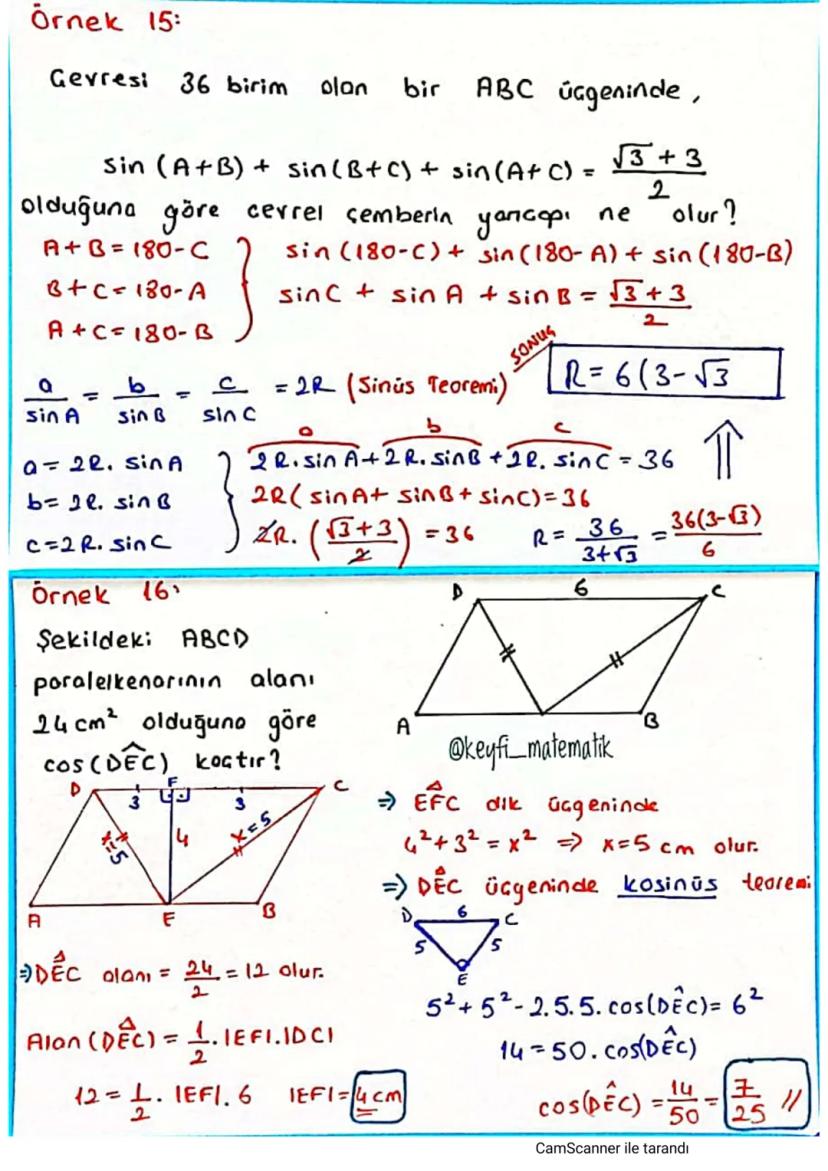 Örnek 15:
Çevresi 36 birim olan bir ABC üçgeninde,
sin (A+B) + sin(B+C) + sin(A+C) = (√3 + 3)/2
olduğuna göre çevrel çemberin yarıçapı ne olur?
A+B = 180-C
B+C = 180-A
A+C = 180-B
sin (180-C) + sin(180-A) + sin(180-B)
sinC + sin A + sin B = (√3 + 3)/2
SONUÇ
R = 6(3-√3
a/sin A = b/sin B = c/sin C = 2R (Sinüs Teoremi)
a = 2R. sin A
b = 2R. sin B
c = 2R. sin C
a b c
2R. sin A + 2R. sin B + 2R. sin C = 36
2R( sin A + sin B + sin C) = 36
2R. ((√3 + 3)/2) = 36
R = 36/(3+√3) = 36(3-√3)/6
Örnek 16:
Şekildeki ABCD
paralelkenarının alanı
24 cm² olduğuna göre
cos(DÊC) kaçtır?
D 6 C
A B
@keyfi_matematik
D F C
3 3
x=5 4 x=5
A E B
⇒ DEC alanı = 24/2 = 12 olur.
Alan (DEC) = 1/2 . |EF|.|DC|
12 = 1/2 . |EF|. 6 |EF| = 4 cm
⇒ EFC dik üçgeninde
4² + 3² = x² ⇒ x=5 cm olur.
⇒ DEC üçgeninde kosinüs teoremi
D 6 C
5 5
E
5² + 5² - 2.5.5. cos(DÊC) = 6²
14 = 50. cos(DÊC)
cos(DÊC) = 14/50 = 7/25 //
CamScanner ile tarandı